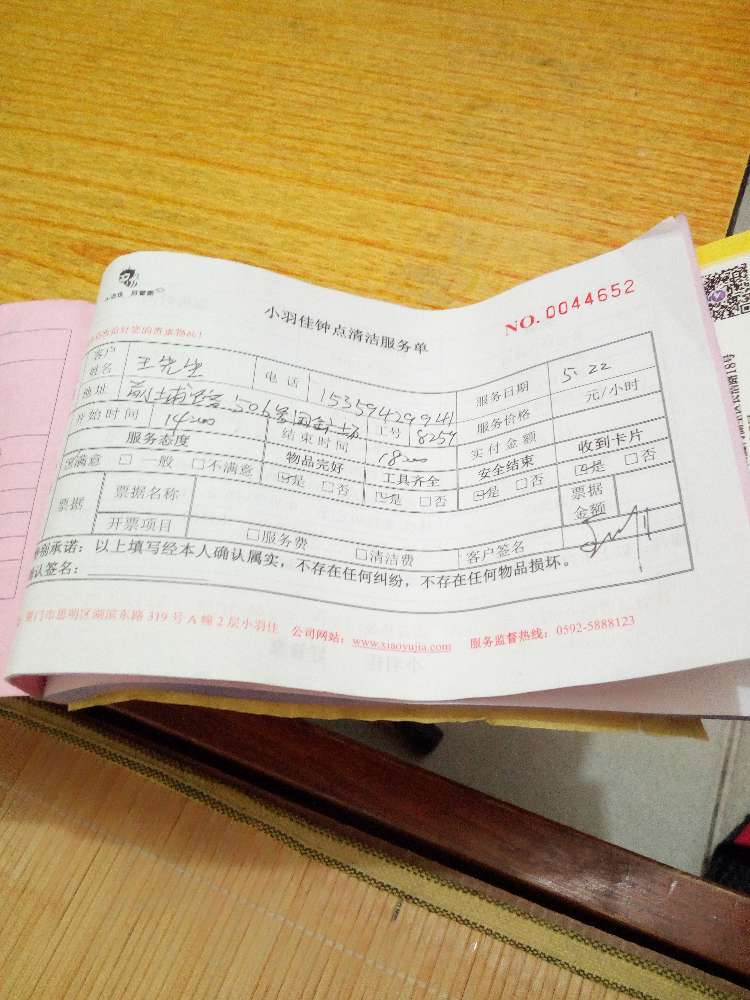 小羽佳 好管家
小羽佳钟点清洁服务单
NO.0044652
客户姓名 王先生 电话 15359429941 服务日期 5.22
地址 506 工号 8259 服务价格 元/小时
开始时间 14:00 结束时间 18:00 实付金额
服务态度 物品完好 工具齐全 安全结束 收到卡片
☑满意 □一般 □不满意 ☑是 □否 ☑是 □否 ☑是 □否 ☑是 □否
票据 票据名称 票据金额
开票项目 □服务费 □清洁费 客户签名
特别承诺：以上填写经本人确认属实，不存在任何纠纷，不存在任何物品损坏。
确认签名：
厦门市思明区湖滨东路 319 号 A 幢 2 层小羽佳 公司网站：www.xiaoyujia.com 服务监督热线：0592-5888123